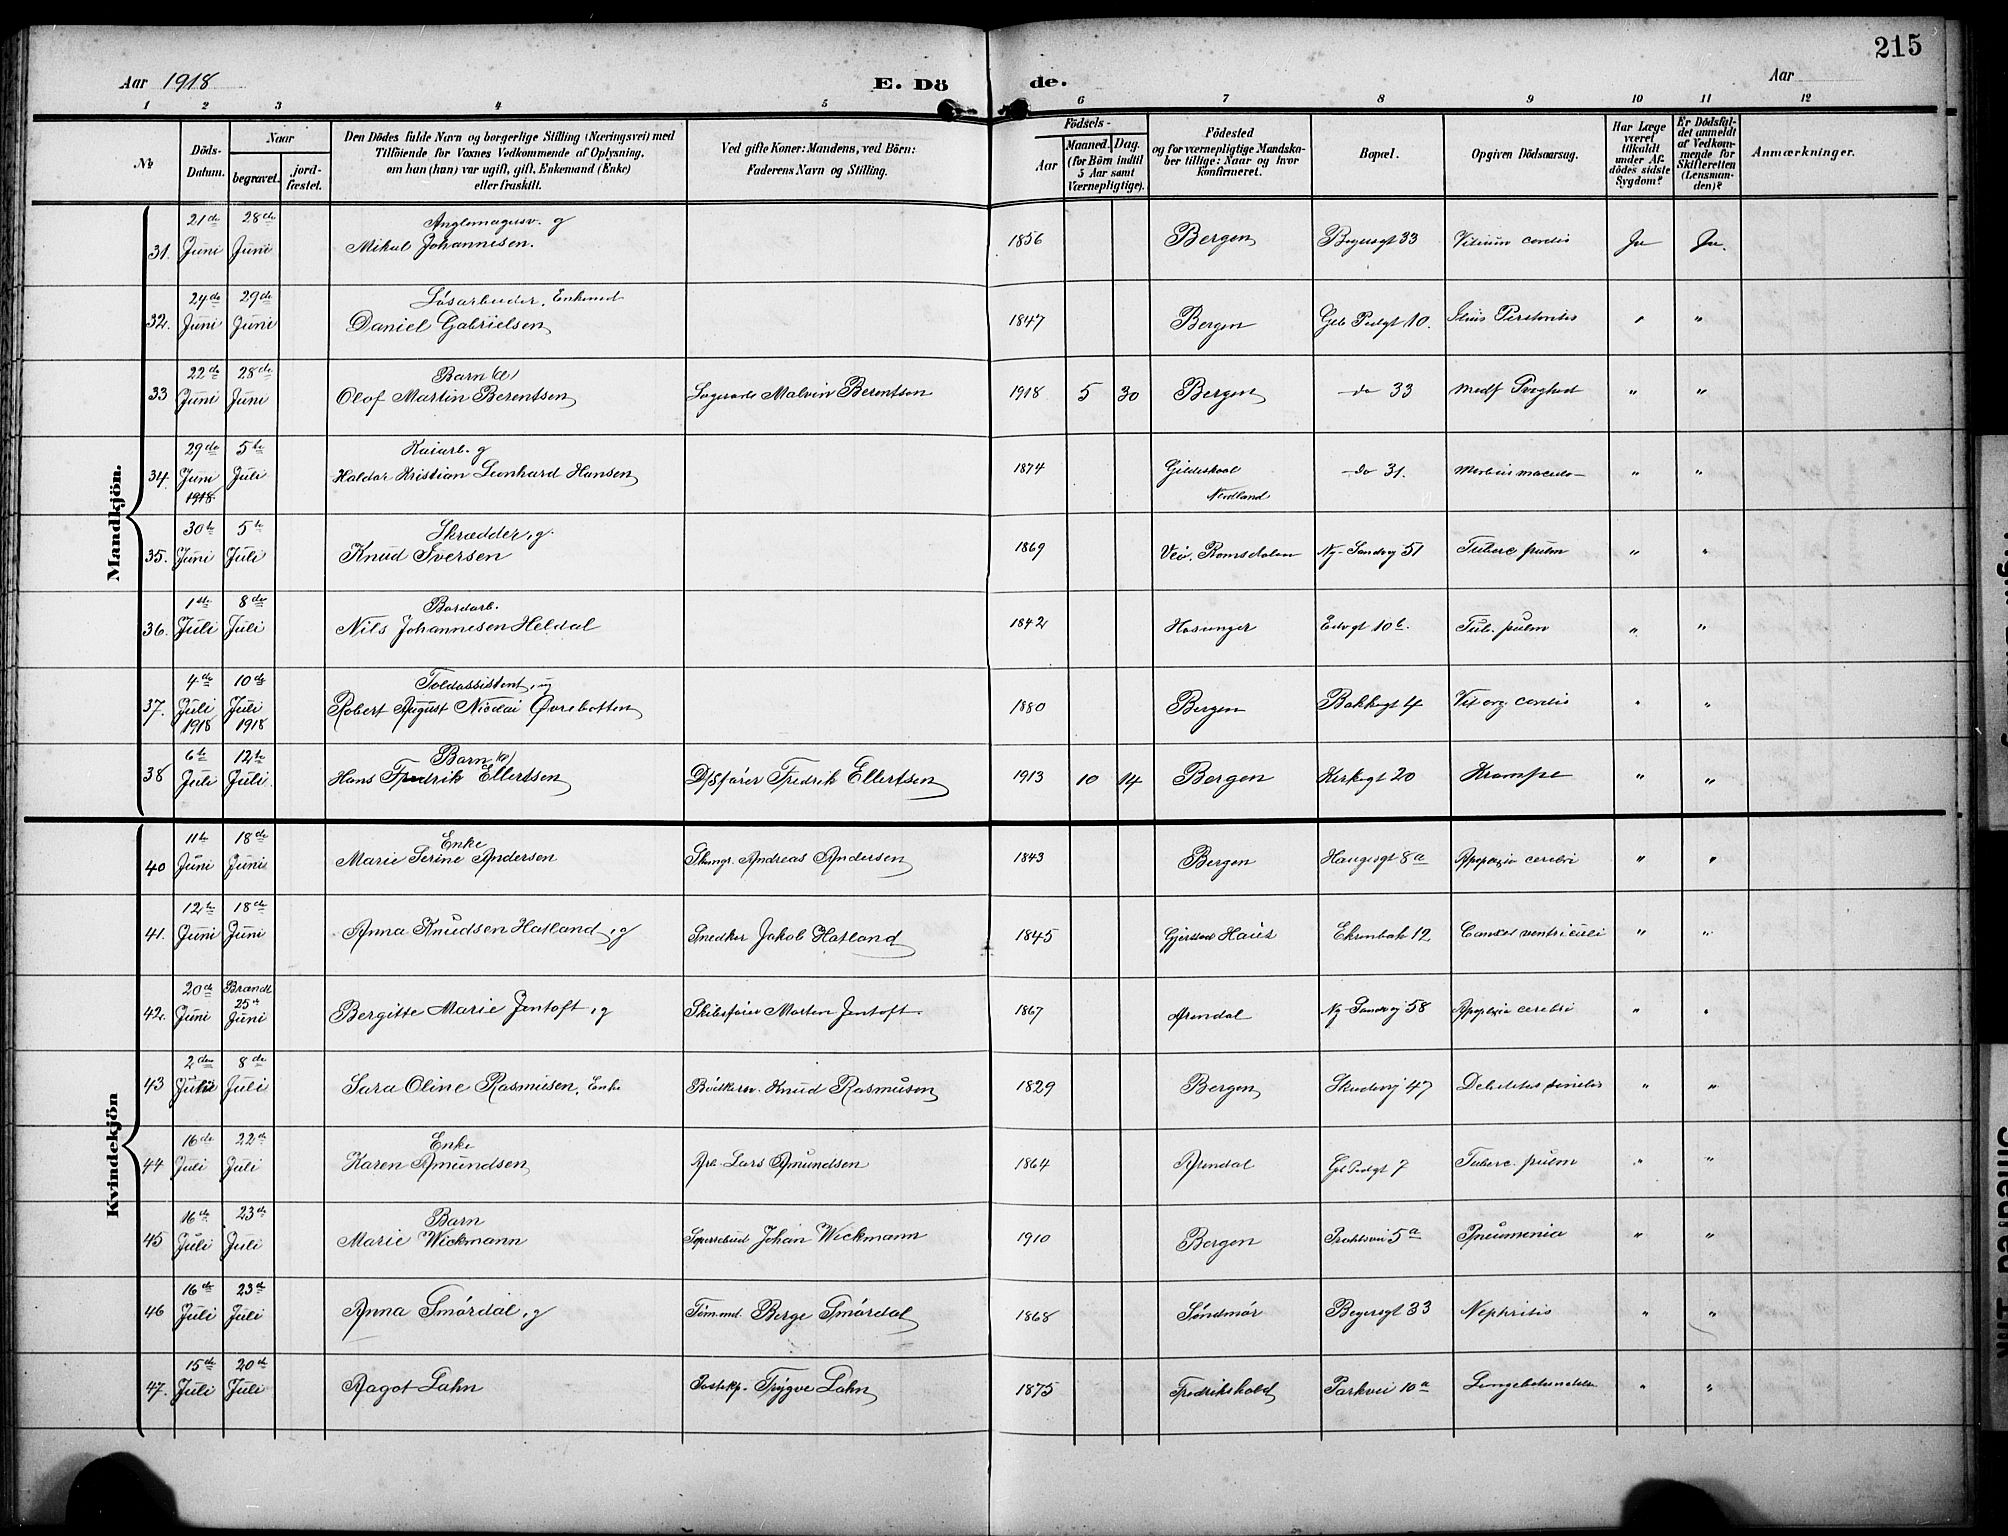 215
Aar 1918
E. Dö de.
Aar
1 2 3 4 5 6 7 8 9 10 11 12
No
Döds-Datum.
Naar
begravet.
jordfæstet.
Den Dödes fulde Navn og borgerlige Stilling (Næringsvei) med
Tilföiende for Voxnes Vedkommende af Oplysning,
om han (hun) var ugift, gift, Enkemand (Enke)
eller fraskilt.
Ved gifte Koner: Mandens, ved Börn:
Faderens Navn og Stilling.
Födsels-
Aar
Maaned. Dag.
(for Börn indtil
5 Aar samt
Værnepligtige).
Födested
og for værnepligtige Mandskaber
tillige: Naar og hvor
konfirmeret.
Bopæl.
Opgiven Dödsaarsag.
Har Læge
været
tilkaldt
under Afdödes
sidste
Sygdom?
Er Dödsfaldet
anmeldt
af Vedkommende
for
Skifteretten
(Lensmanden)?
Anmærkninger.
Mandkjön.
31. 21de Juni 28de Juni g Mikal Johannesen. 1856 Bergen 33 Vitium cordis Ja Ja.
32. 24de Juni 29de Juni Løsarbeider, Enkemd Daniel Gabrielsen 1847 Bergen 10. Peretonitis " "
33 22de Juni 28de Juni Barn (æ) Olof Martin Berentsen Malvin Berentsen 1918 5 30 Bergen do 33 Medf " "
34. 29de Juni 1918 5te Juli Kaiarb. g Haldor Kristian Leonhard Hansen 1874 Gildeskaal Nordland do 31. Morbus " "
35. 30te Juni 5te Juli Skrædder, g. Knud Iversen 1869 Veø, Romsdalen Ny-Sandvg 51 Tuberc pulm " "
36. 1ste Juli 8de Juli Nils Johannesen Heldal 1842 Hosanger 10b. Tub. pulm " "
37. 4de Juli 1918 10de Juli 1918 Toldassistent, ug Robert August Nicolai Øvrebotten 1880 Bergen Bakkegt 4 Vit org cordis " "
38 6te Juli 12te Juli Barn (æ) Hans Fredrik Ellertsen D/Sfører Fredrik Ellertsen 1913 10 14 Bergen Kirkegt 20 Krampe " "
Kvindekjön
40 11te Juni 18de Juni Enke Marie Serine Andersen Andreas Andersen 1843 Bergen Haugesgt 8a Apoplexia cerebri " "
41. 12te Juni 18de Juni Anna Knudsen Hatland, g Snedker Jakob Hatland 1845 Haus 12 Cancer ventriculi " "
42. 20de Juni Brændt 25de Juni Bergitte Marie Jentoft, g Skibsfører Morten Jentoft 1867 Arendal Ny-Sandvg 58 Apoplexia cerebri " "
43 2den Juli 8de Juli Sara Oline Rasmusen, Enke Knud Rasmusen 1829 Bergen Skudevg 47 Debilitas senilis " "
44 16de Juli 22de Juli Enke Karen Amundsen Arb Lars Amundsen 1864 Arendal 7 Tuberc. pulm " "
45 16de Juli 23de Juli Barn Marie Wickmann Johan Wickmann 1910 Bergen 5a Pneumonia " "
46 16de Juli 23de Juli Anna Smørdal, g Tømmd. Berge Smørdal 1868 Søndmør 33 Nephritis " "
47. 15de Juli 20de Juli Ragot Lahn Trygve Lahn 1875 Fredrikshald Parkvei 10a Lungebetændelse " "